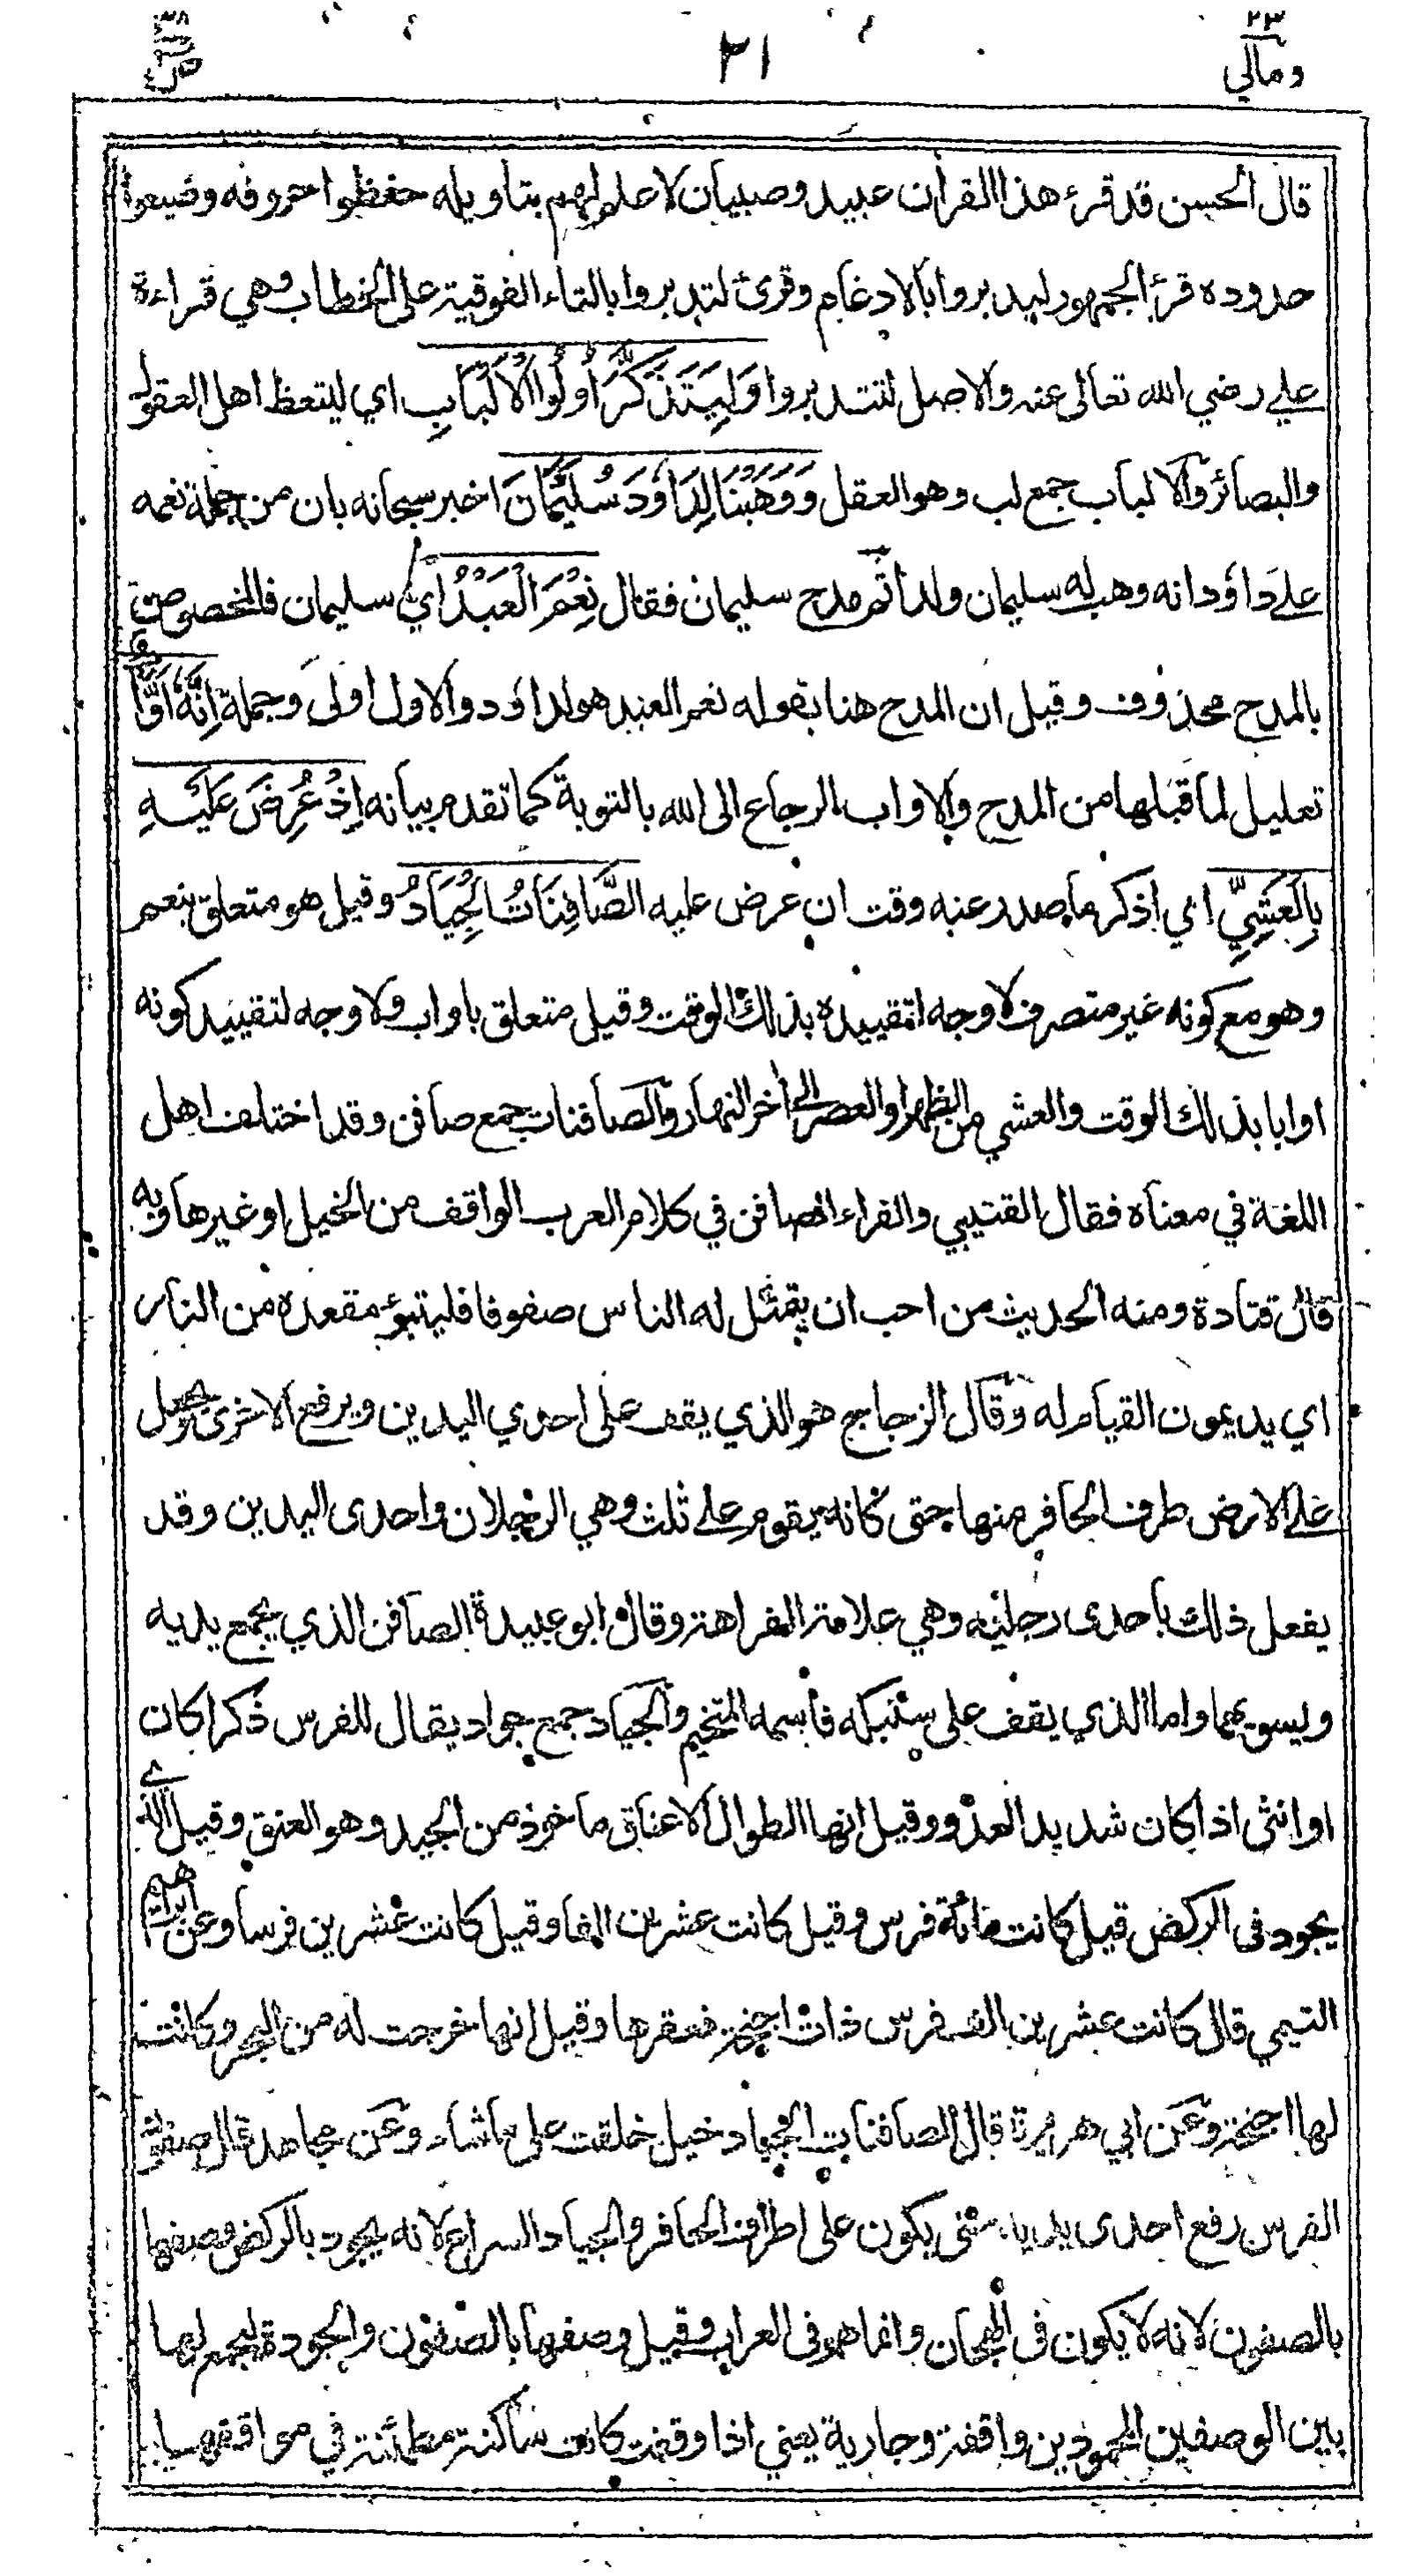 ٢٣
ومالي
٢١
ص ٣٨
قال الحسن قد قرئ هذا القرآن عبيد وصبيان لا علم لهم بتاويله حفظوا حروفه وضيعوا
حدوده قرء الجمهور ليدبروا بالادغام وقرئ لتدبروا بالتاء الفوقية على الخطاب وهي قراءة
علي رضي الله تعالى عنه والاصل لتتدبروا وَلِيَتَذَكَّرَ اُولُوا الْاَلْبَابِ اي ليتعظ اهل العقول
والبصائر والالباب جمع لب وهو العقل وَوَهَبْنَا لِدَاوٗدَ سُلَيْمَانَ اخبر سبحانه بان من جملة نعمه
على داؤد انه وهب له سليمان ولدا ثم مدح سليمان فقال نِعْمَ الْعَبْدُ اي سليمان فالمخصوص
بالمدح محذوف وقيل ان المدح هنا بقوله نعم العبد هو لداؤد والاول اولى وجملة اِنَّهٗ اَوَّابٌ
تعليل لما قبلها من المدح والاواب الرجاع الى الله بالتوبة كما تقدم بيانه اِذْ عُرِضَ عَلَيْهِ
بِالْعَشِيِّ اي اذكر ما صدر عنه وقت ان عرض عليه الصَّافِنَاتُ الْجِيَادُ وقيل هو متعلق بنعم
وهو مع كونه غير متصرف لا وجه لتقييده بذلك الوقت وقيل متعلق باواب ولا وجه لتقييد كونه
اوابا بذلك الوقت والعشي من الظهر او العصر الى اخر النهار والصافنات جمع صافن وقد اختلف اهل
اللغة في معناه فقال القتيبي والفراء الصافن في كلام العرب الواقف من الخيل او غيرها وبه
قال قتادة ومنه الحديث من احب ان يتمثل له الناس صفوفا فليتبوء مقعده من النار
اي يديمون القيام له وقال الزجاج هو الذي يقف على احدي اليدين ويرفع الاخرى ويجعل
على الارض طرف الحافر منها حتى كانه يقوم على ثلث وهي الرجلان واحدى اليدين وقد
يفعل ذلك باحدى رجليه وهي علامة الفراهة وقال ابو عبيدة الصافن الذي يجمع يديه
ويسويهما واما الذي يقف على سنبكه فاسمه المتخيم والجياد جمع جواد يقال للفرس ذكرا كان
او انثى اذا كان شديد العدو وقيل انها الطوال الاعناق ماخوذ من الجيد وهو العنق وقيل الذي
يجود في الركض قيل كانت مائة فرس وقيل كانت عشرين الفا وقيل كانت عشرين فرسا وعن ابراهيم
التيمي قال كانت عشرين الف فرس ذات اجنحة فعقرها وقيل انها خرجت له من البحر وكانت
لها اجنحة وعن ابي هريرة قال الصافنات الجياد خيل خلقت على ما شاء وعن مجاهد قال صفون
الفرس رفع احدى يديه حتى يكون على اطراف الحافر والجياد السراع لانه يجود بالركض وصفها
بالصفون لانه لا يكون في الهجان وانما هو في العراب وقيل وصفها بالصفون والجودة ليجمع لها
بين الوصفين المحمودين واقفة وجارية يعني اذا وقفت كانت ساكنة مطمئنة في مواقفها